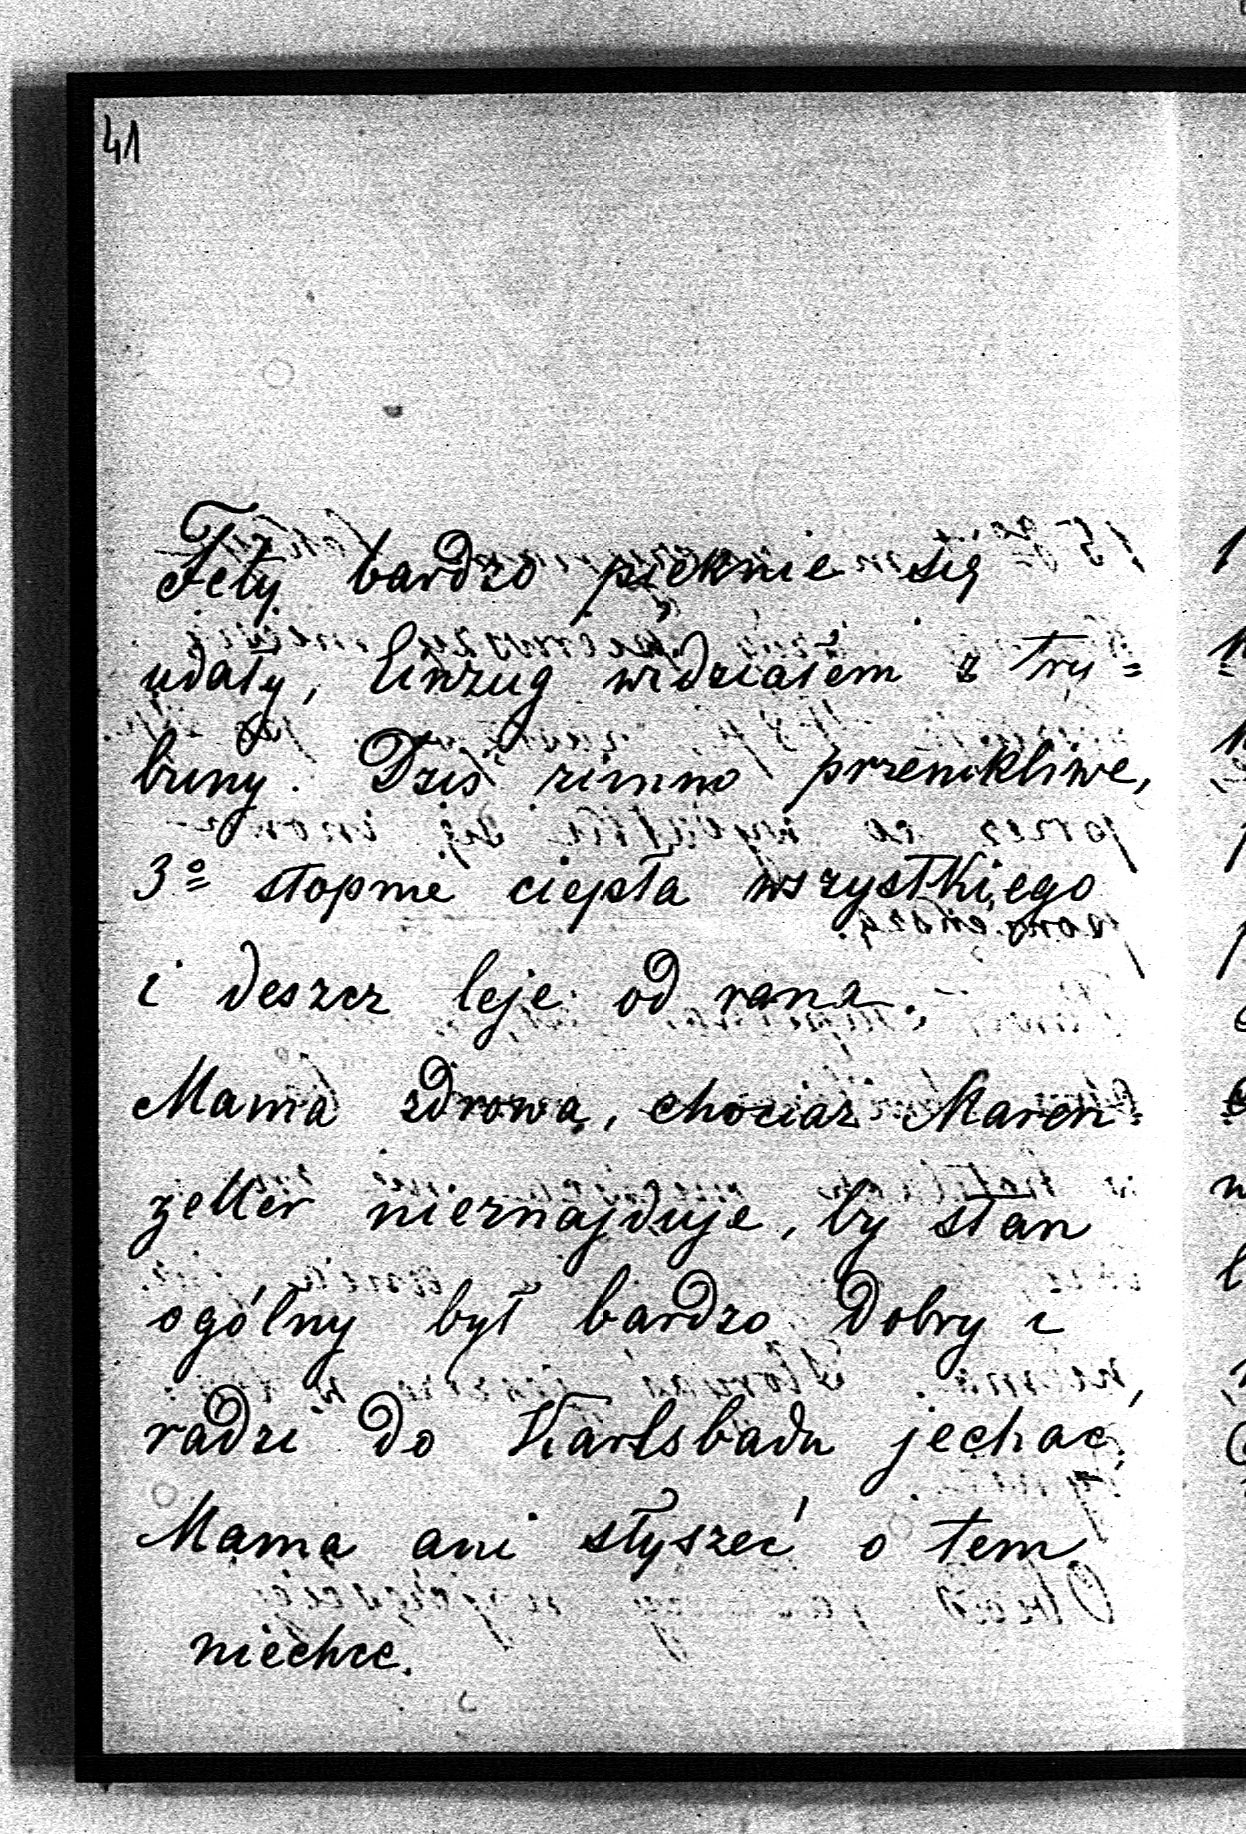 41
Fety bardzo pięknie się
udały, Umzug widziałem z try=
buny. Dziś zimno przenikliwe,
3º stopnie ciepła wszystkiego
i deszcz leje od rana.
Mama zdrowa, chociaż Maren=
zeller nieznajduje, by stan
ogólny był bardzo dobry i
radzi do Karlsbadu jechać,
Mama ani słyszeć o tem
niechce.